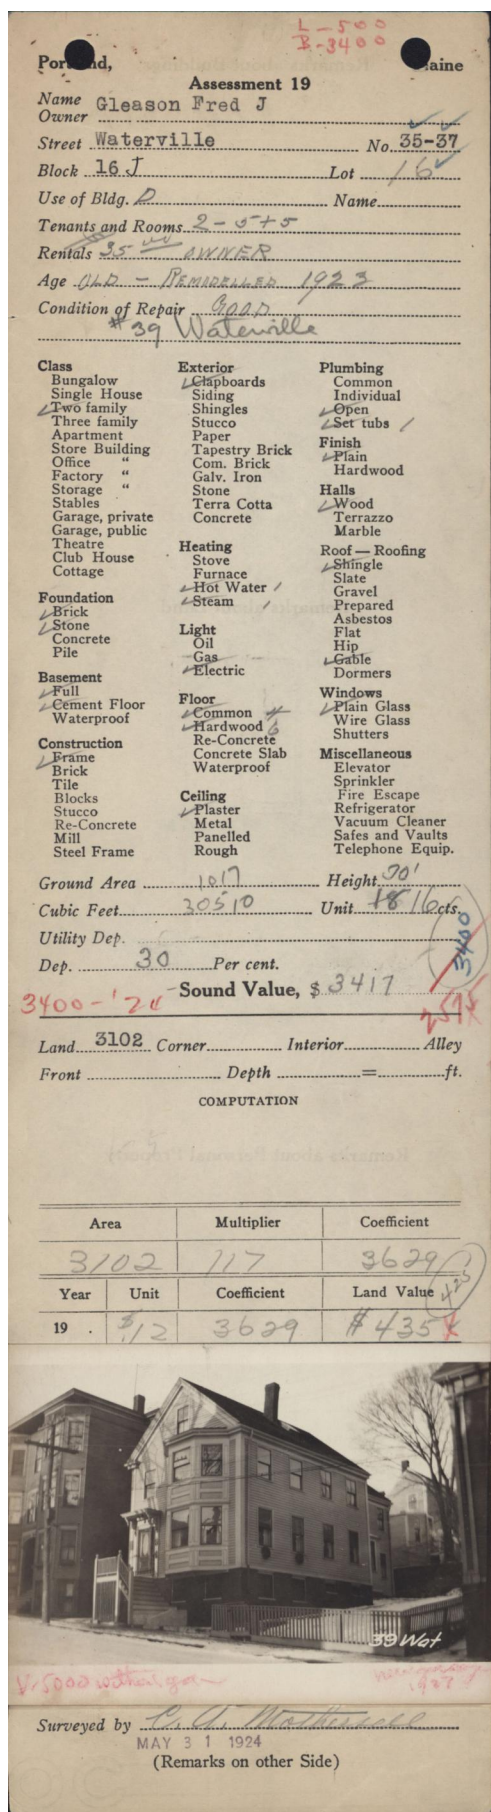 L-500
B-3400
Portland, Maine
Assessment 19
Name
Owner Gleason Fred J
Street Waterville No. 35-37
Block 16 J Lot 16
Use of Bldg. D Name
Tenants and Rooms 2-5+5
Rentals 35 00 OWNER
Age OLD - REMODELLED 1923
Condition of Repair GOOD
#39 Waterville
Class
Bungalow
Single House
✓Two family
Three family
Apartment
Store Building
Office "
Factory "
Storage "
Stables
Garage, private
Garage, public
Theatre
Club House
Cottage
Foundation
✓Brick
✓Stone
Concrete
Pile
Basement
✓Full
✓Cement Floor
Waterproof
Construction
✓Frame
Brick
Tile
Blocks
Stucco
Re-Concrete
Mill
Steel Frame
Exterior
✓Clapboards
Siding
Shingles
Stucco
Paper
Tapestry Brick
Com. Brick
Galv. Iron
Stone
Terra Cotta
Concrete
Heating
Stove
Furnace
✓Hot Water /
✓Steam /
Light
Oil
Gas
✓Electric
Floor
✓Common 4
✓Hardwood 6
Re-Concrete
Concrete Slab
Waterproof
Ceiling
✓Plaster
Metal
Panelled
Rough
Plumbing
Common
Individual
✓Open
✓Set tubs /
Finish
✓Plain
Hardwood
Halls
✓Wood
Terrazzo
Marble
Roof — Roofing
✓Shingle
Slate
Gravel
Prepared
Asbestos
Flat
Hip
✓Gable
Dormers
Windows
✓Plain Glass
Wire Glass
Shutters
Miscellaneous
Elevator
Sprinkler
Fire Escape
Refrigerator
Vacuum Cleaner
Safes and Vaults
Telephone Equip.
Ground Area 1017 Height 30'
Cubic Feet 30510 Unit 18 16 cts.
Utility Dep.
3400
Dep. 30 Per cent.
Sound Value, $ 3417
3400-'24
Land 3102 Corner Interior Alley
Front Depth = ft.
COMPUTATION
Area Multiplier Coefficient
3102 117 3629
425
Year Unit Coefficient Land Value
19 . $.12 3629 $435
39 Wat
1927
Surveyed by
MAY 31 1924
(Remarks on other Side)